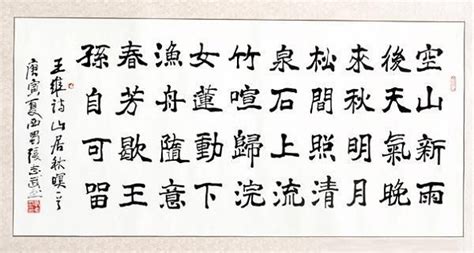 空山新雨
後天氣晚
來秋明月
松間照清
泉石上流
竹喧歸浣
女蓮動下
漁舟隨意
春芳歇王
孫自可留
王維詩山居秋暝一首
庚寅夏西蜀張志